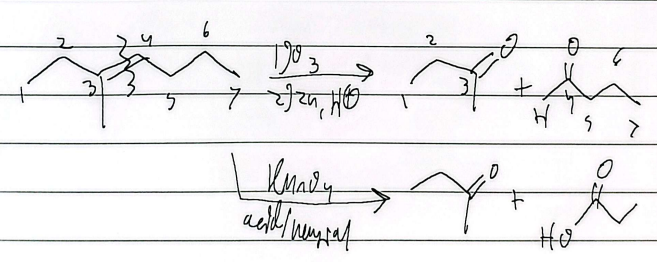 2 4 6 1) O3 2 O O
1 3 3 5 7 2) Zn, H⊕ 1 3 + H 4 5 6 7
KMnO4 O + O
acid/neutral HO